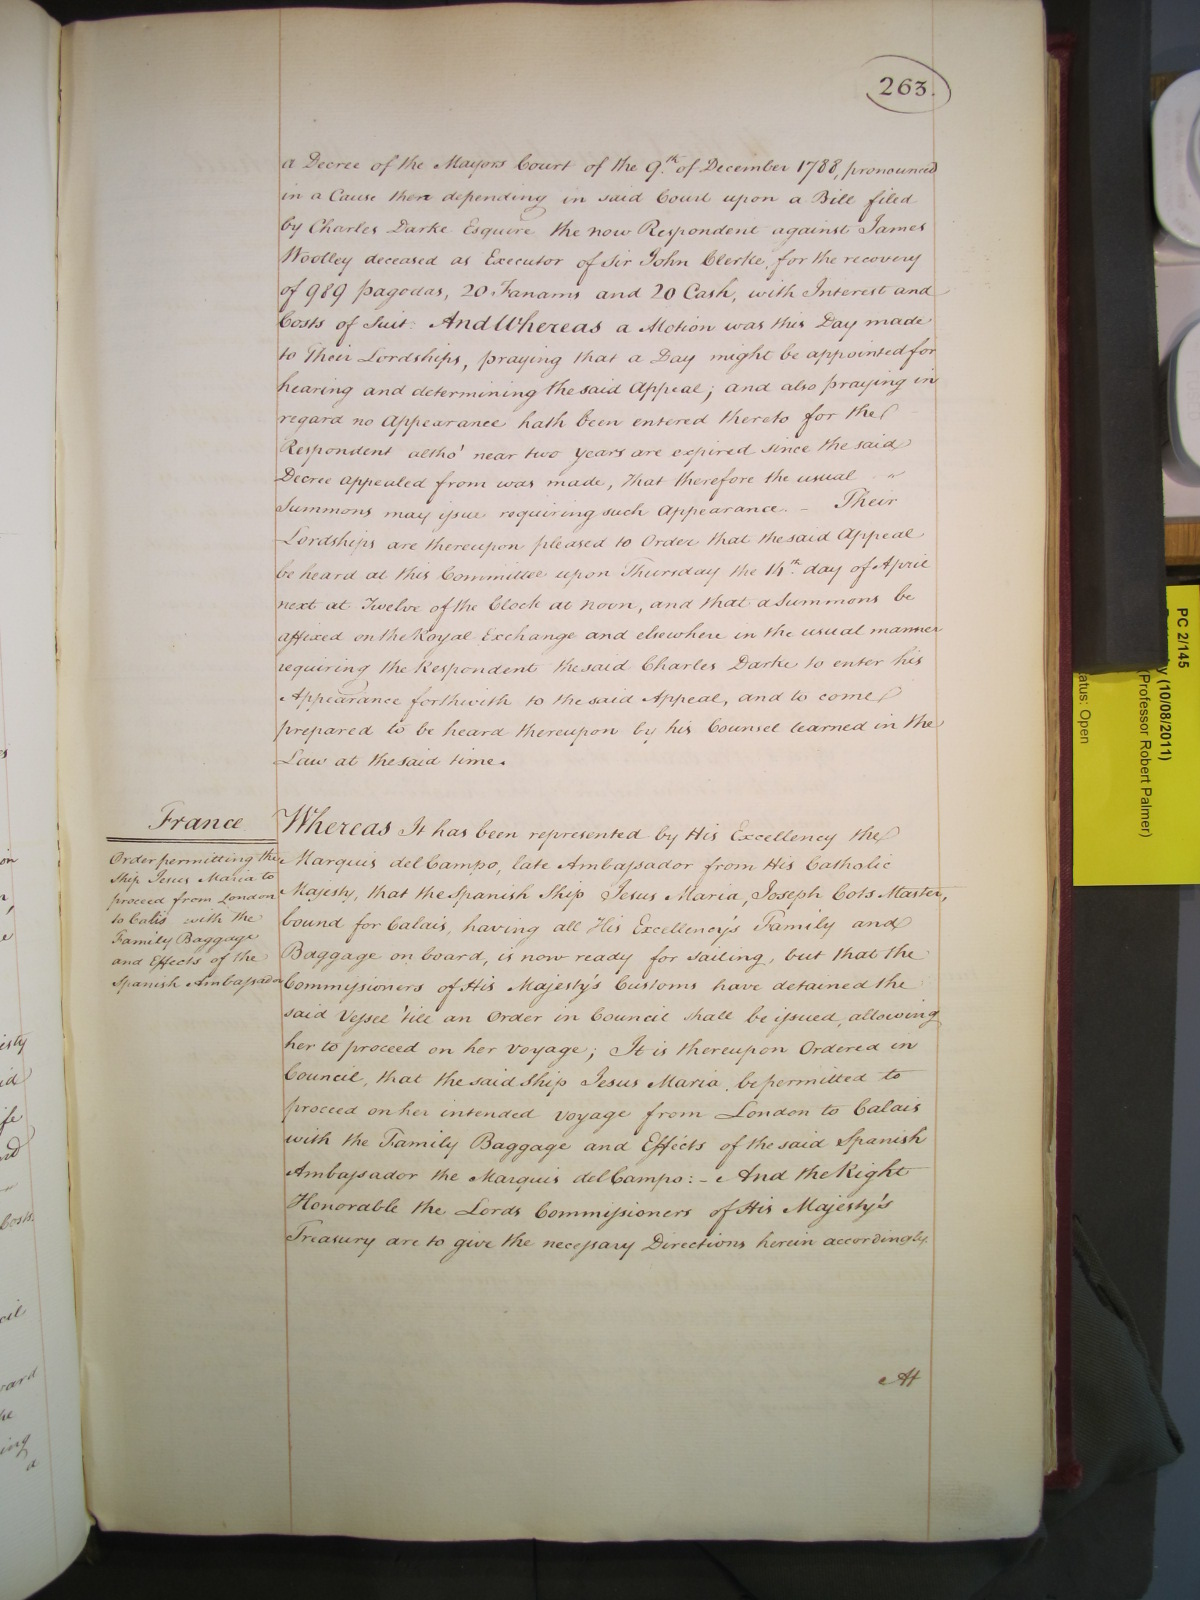 263.
a Decree of the Mayors Court of the 9.th of December 1788, pronounced
in a Cause there depending in said Court upon a Bill filed
by Charles Darke Esquire the now Respondent against James
Woolley deceased as Executor of Sir John Clerke, for the recovery
of 989 pagodas, 20 Fanams and 20 Cash, with Interest and
Costs of Suit: And Whereas a Motion was this Day made
to Their Lordships, praying that a Day might be appointed for
hearing and determining the said Appeal; and also praying in
regard no Appearance hath been entered thereto for the
Respondent altho' near two years are expired since the said
Decree appealed from was made, that therefore the usual
Summons may issue requiring such Appearance. - Their
Lordships are thereupon pleased to Order that the said Appeal
be heard at this Committee upon Thursday the 14.th day of April
next at Twelve of the Clock at noon, and that a Summons be
affixed on the Royal Exchange and elsewhere in the usual manner
requiring the Respondent the said Charles Darke to enter his
Appearance forthwith to the said Appeal, and to come
prepared to be heard thereupon by his Counsel learned in the
Law at the said time.
France
Order permitting the
Ship Jesus Maria to
proceed from London
to Calis with the
Family Baggage
and Effects of the
Spanish Ambassador
Whereas It has been represented by His Excellency the
Marquis del Campo, late Ambassador from His Catholic
Majesty, that the Spanish Ship Jesus Maria, Joseph Cots Master,
bound for Calais, having all His Excellency's Family and
Baggage on board, is now ready for sailing, but that the
Commissioners of His Majesty's Customs have detained the
said Vessel 'till an Order in Council shall be issued, allowing
her to proceed on her voyage; It is thereupon Ordered in
Council, that the said Ship Jesus Maria be permitted to
proceed on her intended voyage from London to Calais
with the Family Baggage and Effects of the said Spanish
Ambassador the Marquis del Campo: - And the Right
Honorable the Lords Commissioners of His Majesty's
Treasury are to give the necessary Directions herein accordingly.
At
PC 2/145
(10/08/2011)
(Professor Robert Palmer)
atus: Open